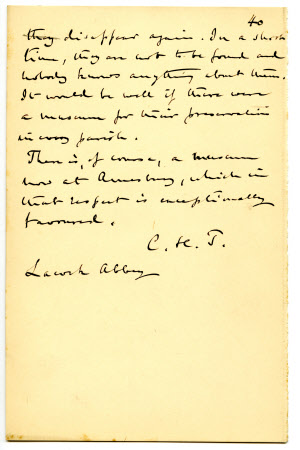 40
they disappear again. In a short
time, they are not to be found and
nobody knows anything about them.
It would be well if there were
a museum for their preservation
in every parish.
There is, of course, a museum
now at Amesbury, which in
that respect is exceptionally
favoured.
C. H. T.
Lacock Abbey